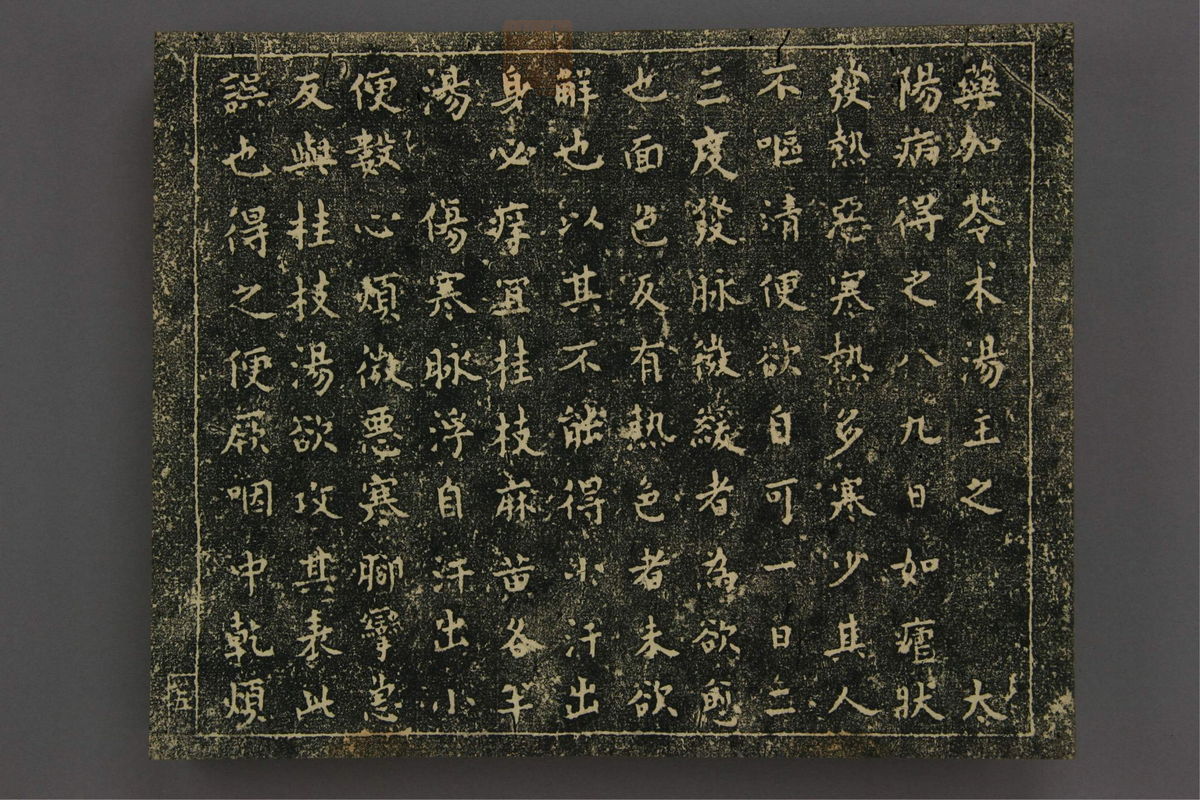 藥加苓术湯主之　太
陽病得之八九日如瘧狀
發熱惡寒熱多寒少其人
不嘔清便欲自可一日二
三度發脉微緩者為欲愈
也面色反有熱色者未欲
觧也以其不能得小汗出
身必痒宜桂枝麻黄各半
湯　傷寒脉浮自汗出小
便數心煩微惡寒腳攣急
反與桂枝湯欲攻其表此
誤也得之便厥咽中乾煩